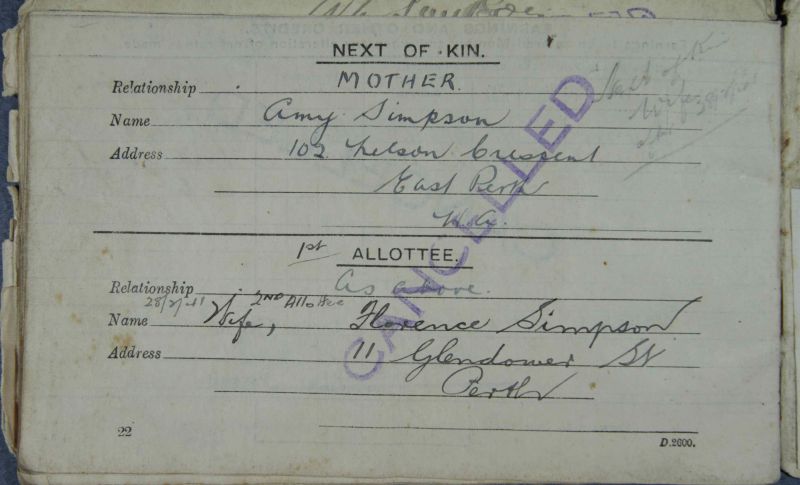 NEXT OF KIN.
Relationship MOTHER.
Name Amy Simpson
Address 102 Nelson Crescent
East Perth
W.A.
Next of Kin
Wife
CANCELLED
1st ALLOTTEE.
Relationship As above.
28/2/41 2ND Allottee
Name Wife, Florence Simpson
Address 11 Glendower St
Perth
22
D.2600.